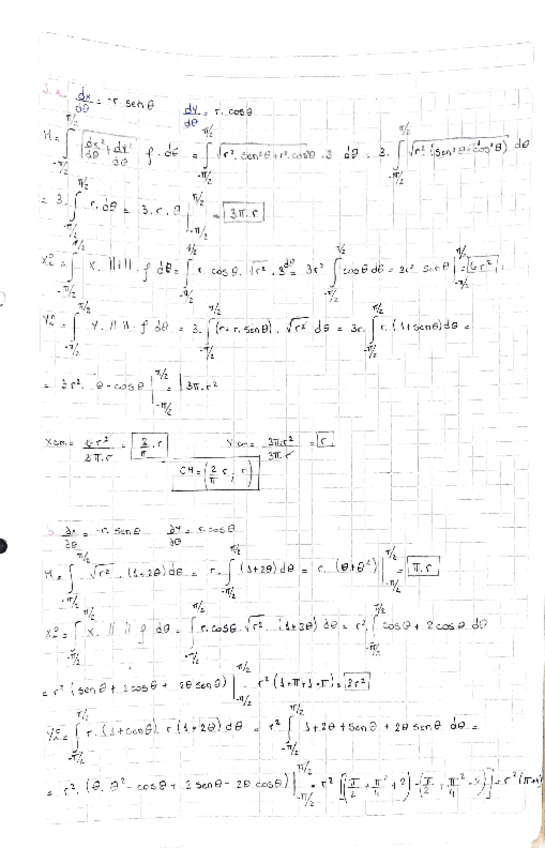 3.a. dx/dθ = -r. senθ   dy/dθ = r. cosθ
M = ∫_{-π/2}^{π/2} √(dx²/dθ + dy²/dθ) ρ. dθ = ∫_{-π/2}^{π/2} √(r². sen²θ + r². cos²θ) . 3 dθ = 3. ∫_{-π/2}^{π/2} √(r². (sen²θ + cos²θ)) dθ
= 3. ∫_{-π/2}^{π/2} r. dθ = 3. r. θ |_{-π/2}^{π/2} = 3π. r
= ∫_{-π/2}^{π/2} X. || || . ρ dθ = ∫_{-π/2}^{π/2} r. cosθ. √r² . 3 dθ = 3r² ∫_{-π/2}^{π/2} cosθ dθ = 3r² senθ |_{-π/2}^{π/2} = 6r²
= ∫_{-π/2}^{π/2} Y. || || . ρ dθ = 3. ∫_{-π/2}^{π/2} (r + r. senθ). √r² dθ = 3r. ∫_{-π/2}^{π/2} r. (1 + senθ) dθ =
= 3r². θ - cosθ |_{-π/2}^{π/2} = 3π. r²
Xcm = r²/ π. r = 2/π . r   Ycm = 3π. r²/3π. r = r
CM = (2/π r ; r)
b. dx/dθ = -r. senθ   dy/dθ = r. cosθ
M = ∫_{-π/2}^{π/2} √r² . (1+2θ) dθ = r. ∫_{-π/2}^{π/2} (1+2θ) dθ = r. (θ + θ²) |_{-π/2}^{π/2} = π. r
= ∫_{-π/2}^{π/2} X. || || ρ dθ = ∫_{-π/2}^{π/2} r. cosθ. √r² . (1+2θ) dθ = r². ∫_{-π/2}^{π/2} cosθ + 2 cosθ. dθ
= r² (senθ + 2 cosθ + 2θ senθ) |_{-π/2}^{π/2} = r² (1 + π + 1 - π) = 2r²
= ∫_{-π/2}^{π/2} r. (1 + senθ). r (1 + 2θ) dθ = r² ∫_{-π/2}^{π/2} 1 + 2θ + senθ + 2θ senθ dθ =
= r². (θ + θ² - cosθ + 2 senθ - 2θ cosθ) |_{-π/2}^{π/2} = r² [(π/2 + π²/4 + 2) - (-π/2 + π²/4 - 2)] = r² (π+4)